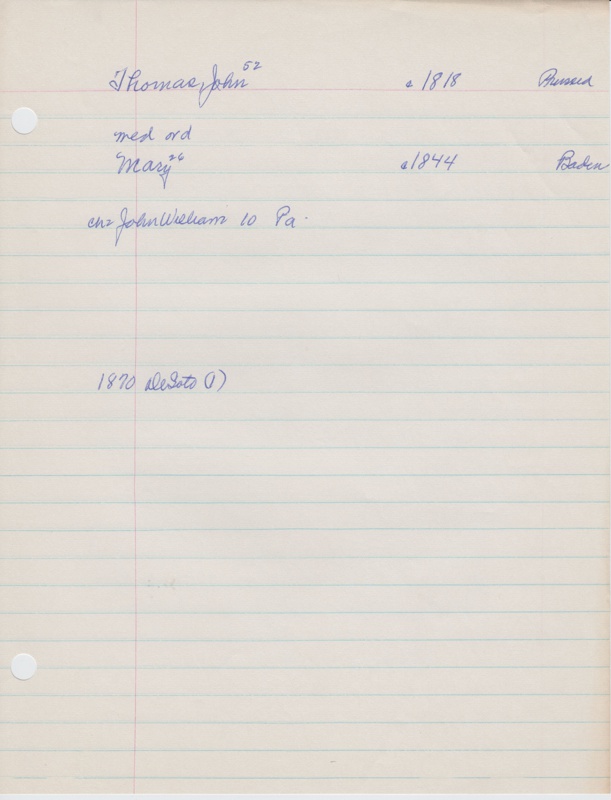 Thomas, John 52 c 1818 Prussia
med ord
Mary 26 c 1844 Baden
ch= John William 10 Pa.
1870 DeSoto (1)